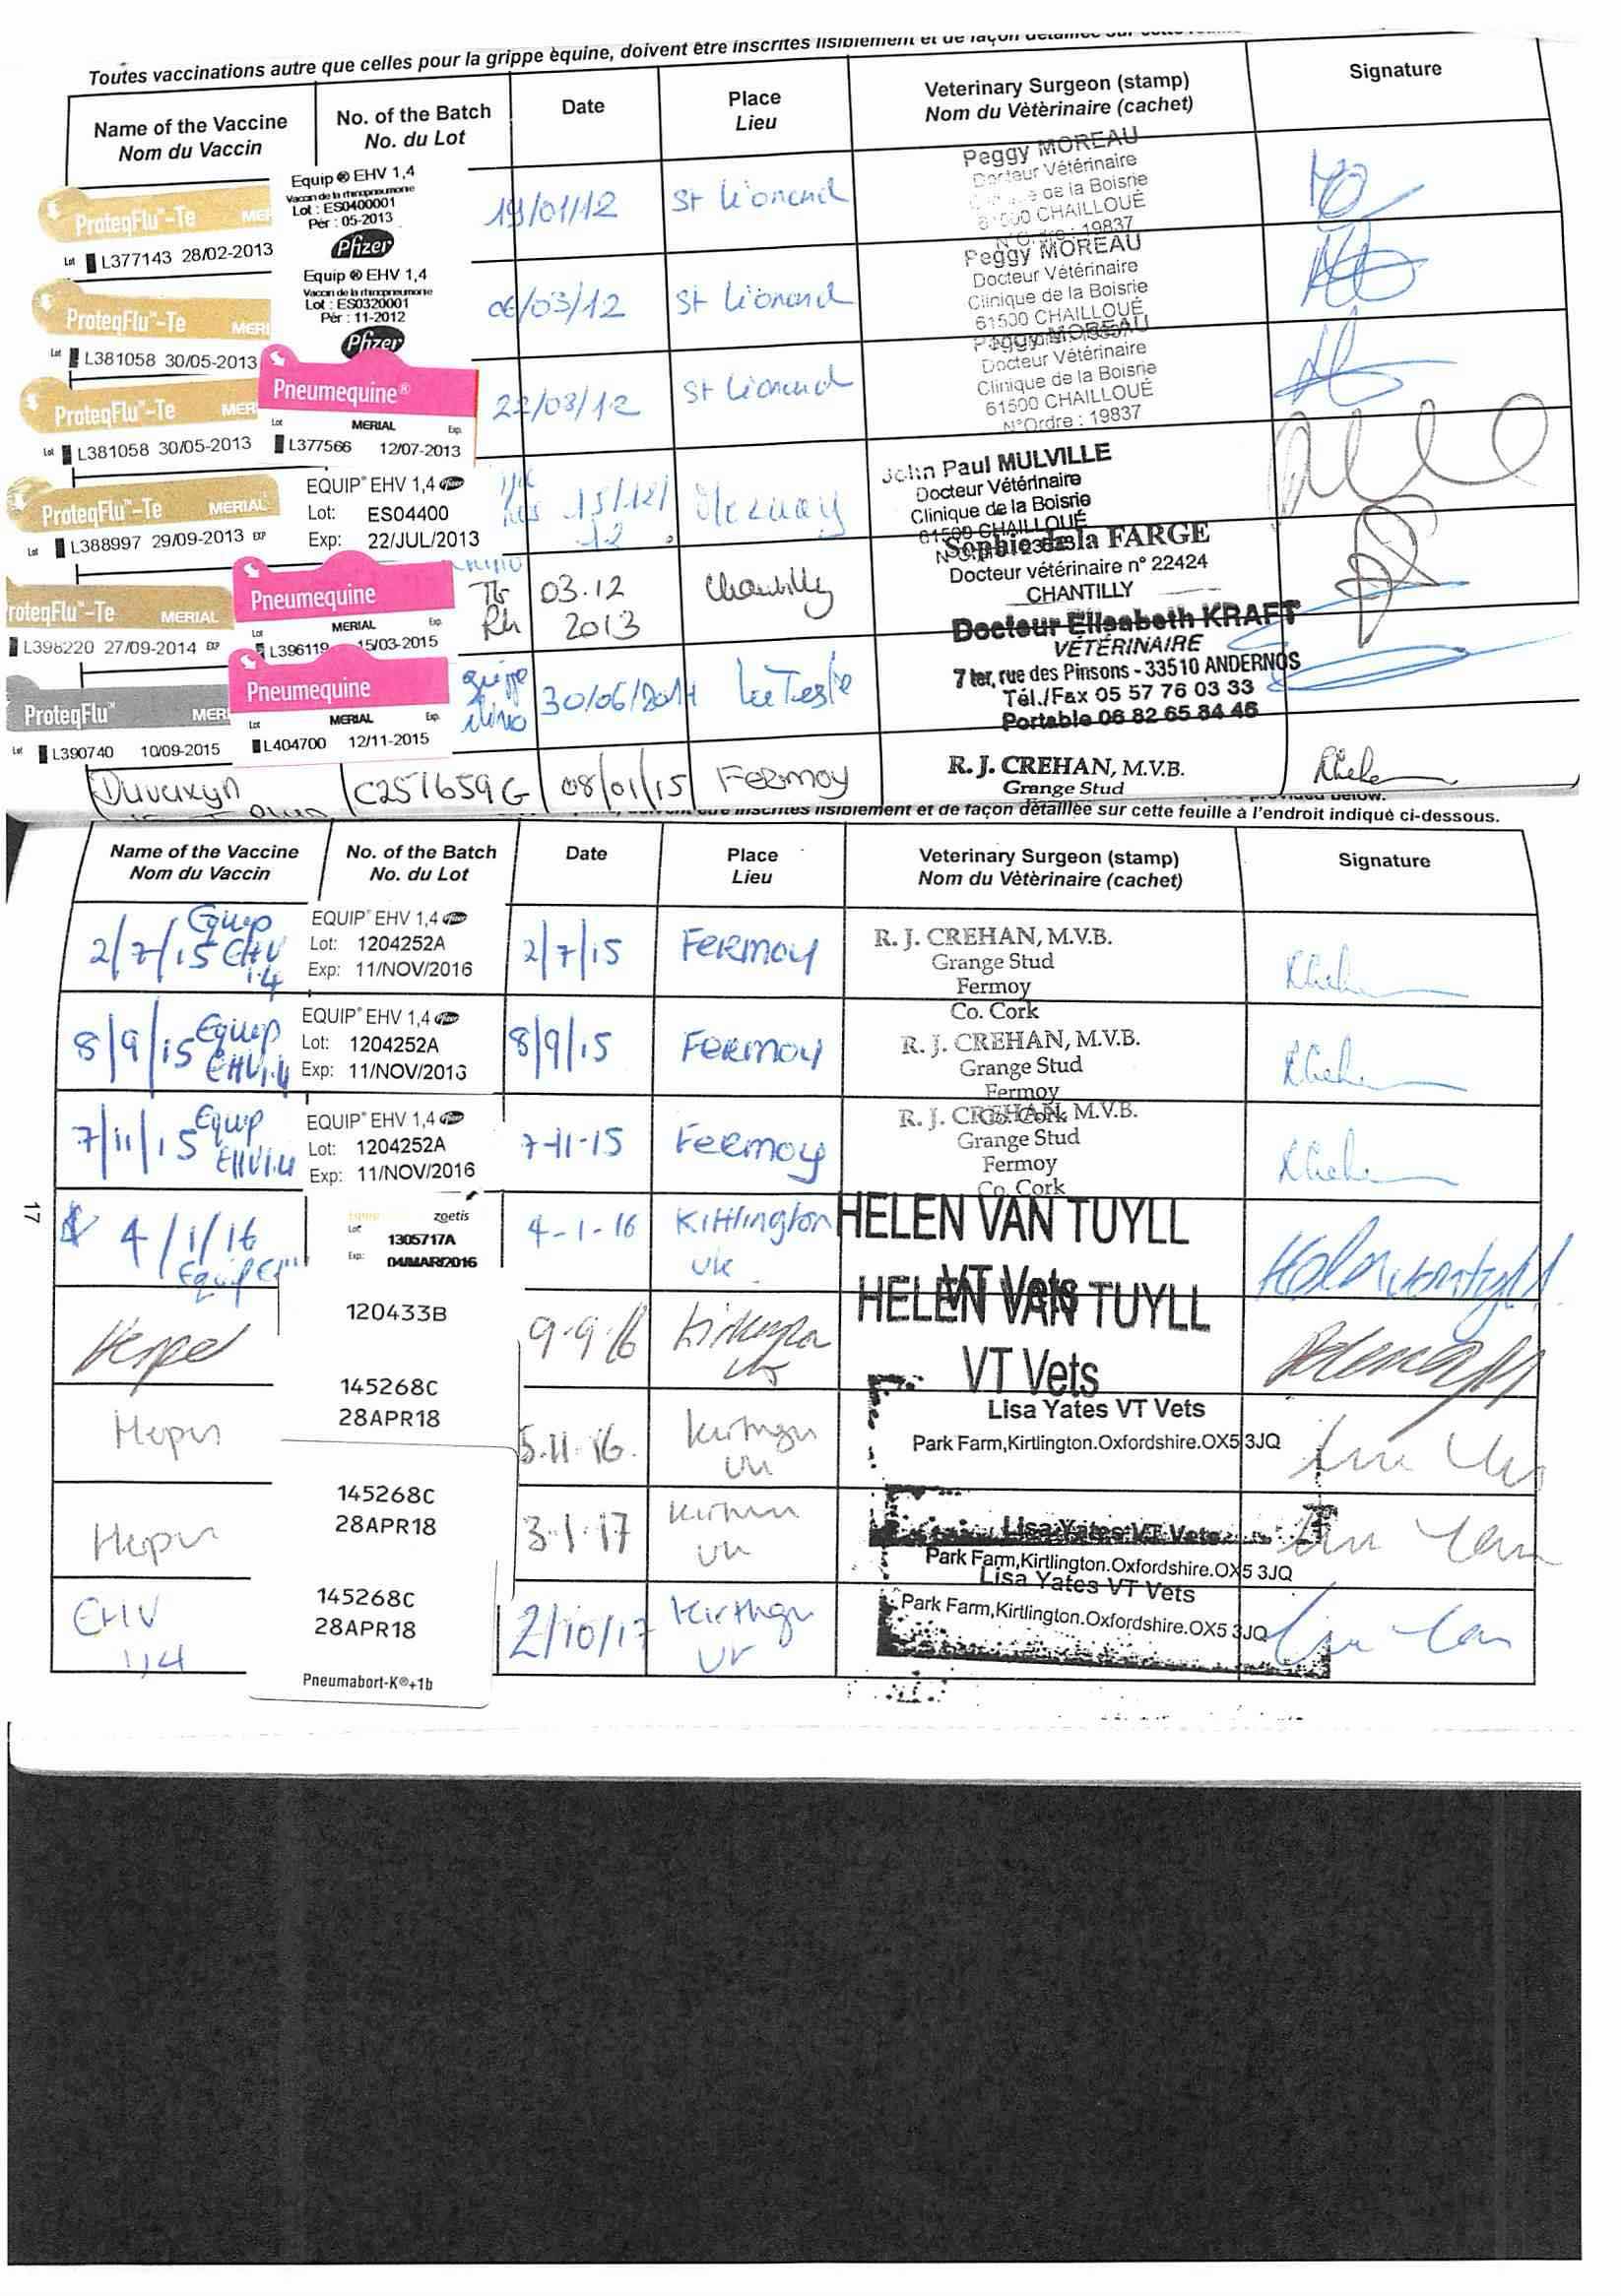 Toutes vaccinations autre que celles pour la grippe équine, doivent être inscrites lisiblement et de façon détaillée sur cette
Name of the Vaccine
Nom du Vaccin
No. of the Batch
No. du Lot
Date
Place
Lieu
Veterinary Surgeon (stamp)
Nom du Vètèrinaire (cachet)
Signature
ProteqFlu™-Te MER
Lot L377143 28/02-2013
Equip ® EHV 1,4
Vaccin de la rhinopneumonie
Lot : ES0400001
Per : 05-2013
Pfizer
19/01/12
St Léonard
Peggy MOREAU
Docteur Vétérinaire
de la Boisrie
61500 CHAILLOUÉ
N°Ordre : 19837
ProteqFlu™-Te MERI
Lot L381058 30/05-2013
Equip ® EHV 1,4
Vaccin de la rhinopneumonie
Lot : ES0320001
Per : 11-2012
Pfizer
06/03/12
St Léonard
Peggy MOREAU
Docteur Vétérinaire
Clinique de la Boisrie
61500 CHAILLOUÉ
ProteqFlu™-Te MER
Lot L381058 30/05-2013
Pneumequine®
MERIAL
Lot Exp.
L377566 12/07-2013
22/03/12
St Léonard
Peggy MOREAU
Docteur Vétérinaire
Clinique de la Boisrie
61500 CHAILLOUÉ
N°Ordre : 19837
ProteqFlu™-Te MERIAL
Lot L388997 29/09-2013 EXP
EQUIP® EHV 1,4 Pfizer
Lot: ES04400
Exp: 22/JUL/2013
15/12/
12
John Paul MULVILLE
Docteur Vétérinaire
Clinique de la Boisrie
61500 CHAILLOUÉ
roteqFlu™-Te MERIAL
L398220 27/09-2014 EXP
Pneumequine
MERIAL
Lot Exp.
L396119 15/03-2015
Rh
03.12
2013
Chantilly
Sophie de la FARGE
Docteur vétérinaire n° 22424
CHANTILLY
ProteqFlu™ MERI
Lot L390740 10/09-2015
Pneumequine
MERIAL
Lot Exp.
L404700 12/11-2015
grippe
30/06/2014
La Teste
Docteur Elisabeth KRAFT
VÉTÉRINAIRE
7 ter, rue des Pinsons - 33510 ANDERNOS
Tél./Fax 05 57 76 03 33
Portable 06 82 65 84 46
Duvaxyn
C251659G
08/01/15
Fermoy
R. J. CREHAN, M.V.B.
Grange Stud
inscrites lisiblement et de façon détaillée sur cette feuille à l'endroit indiqué ci-dessous.
Name of the Vaccine
Nom du Vaccin
No. of the Batch
No. du Lot
Date
Place
Lieu
Veterinary Surgeon (stamp)
Nom du Vètèrinaire (cachet)
Signature
2/7/15 Equip
EHV
1.4
EQUIP® EHV 1,4 Pfizer
Lot: 1204252A
Exp: 11/NOV/2016
2/7/15
Fermoy
R. J. CREHAN, M.V.B.
Grange Stud
Fermoy
Co. Cork
8/9/15 Equip
EHV1.4
EQUIP® EHV 1,4 Pfizer
Lot: 1204252A
Exp: 11/NOV/2016
8/9/15
Fermoy
R. J. CREHAN, M.V.B.
Grange Stud
Fermoy
Co. Cork
7/11/15 Equip
EHV1.4
EQUIP® EHV 1,4 Pfizer
Lot: 1204252A
Exp: 11/NOV/2016
7-11-15
Fermoy
R. J. CREHAN, M.V.B.
Grange Stud
Fermoy
Co. Cork
17
4/1/16
Equip
zoetis
Lot: 1305717A
Exp: 04MAR2016
4-1-16
Kirtlington
UK
HELEN VAN TUYLL
VT Vets
120433B
9.9.16
UK
HELEN VAN TUYLL
VT Vets
145268C
28APR18
5.11.16.
Lisa Yates VT Vets
Park Farm,Kirtlington.Oxfordshire.OX5 3JQ
145268C
28APR18
3.1.17
Lisa Yates VT Vets
Park Farm,Kirtlington.Oxfordshire.OX5 3JQ
EHV
1,4
145268C
28APR18
Pneumabort-K®+1b
2/10/17
Lisa Yates VT Vets
Park Farm,Kirtlington.Oxfordshire.OX5 3JQ